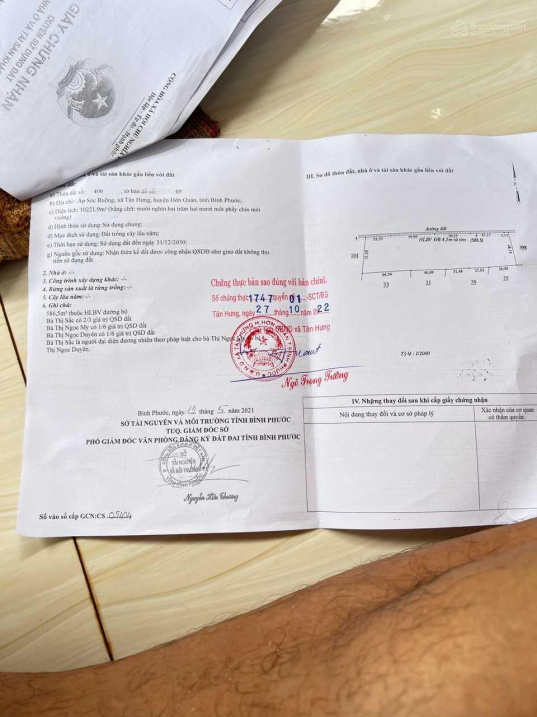 Batdongsan
GIẤY CHỨNG NHẬN
QUYỀN SỬ DỤNG ĐẤT
CỘNG HÒA XÃ HỘI CHỦ NGHĨA
Độc lập - Tự do - Hạnh phúc
tài sản khác gắn liền với đất
a) Thửa đất số: 400 , tờ bản đồ số: 03
b) Địa chỉ: Ấp Sóc Ruộng, xã Tân Hưng, huyện Hớn Quản, tỉnh Bình Phước.
c) Diện tích: 10221,9m² (bằng chữ: mười nghìn hai trăm hai mươi mốt phẩy chín mét
vuông)
d) Hình thức sử dụng: Sử dụng chung;
đ) Mục đích sử dụng: Đất trồng cây lâu năm;
e) Thời hạn sử dụng: Sử dụng đất đến ngày 31/12/2050;
g) Nguồn gốc sử dụng: Nhận thừa kế đất được công nhận QSDĐ như giao đất không thu
tiền sử dụng đất.
2. Nhà ở: -/-
3. Công trình xây dựng khác: -/-
4. Rừng sản xuất là rừng trồng: -/-
5. Cây lâu năm: -/-
6. Ghi chú:
586,5m² thuộc HLBV đường bộ
Bà Thị Sắc có 2/3 giá trị QSD đất
Bà Thị Ngọc My có 1/6 giá trị QSD đất
Bà Thị Ngọc Duyên có 1/6 giá trị QSD đất
Bà Thị Sắc là người đại diện đương nhiên theo pháp luật cho bà Thị Ngọc
Thị Ngọc Duyên.
Chứng thực bản sao đúng với bản chính.
Số chứng thực 1747 quyển 01 -SCT/BS
Tân Hưng, ngày 27 tháng 10 năm 2022
UBND xã Tân Hưng
Ngô Trọng Tường
Bình Phước, ngày 12 tháng 5 năm 2021
SỞ TÀI NGUYÊN VÀ MÔI TRƯỜNG TỈNH BÌNH PHƯỚC
TUQ. GIÁM ĐỐC SỞ
PHÓ GIÁM ĐỐC VĂN PHÒNG ĐĂNG KÝ ĐẤT ĐAI TỈNH BÌNH PHƯỚC
SỞ
TÀI NGUYÊN
Nguyễn Hữu Phương
Số vào sổ cấp GCN:CS
III. Sơ đồ thửa đất, nhà ở và tài sản khác gắn liền với đất
đường đất
HLBV ĐB 4,5m từ tim (586,5)
261
398
33
21
28
35
Tỷ lệ : 1/2000
IV. Những thay đổi sau khi cấp giấy chứng nhận
Nội dung thay đổi và cơ sở pháp lý
Xác nhận của cơ quan
có thẩm quyền